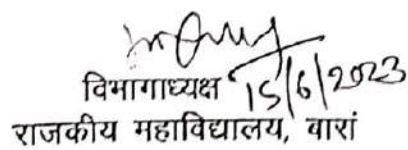 विभागाध्यक्ष 15/6/2023
राजकीय महाविद्यालय, बारां